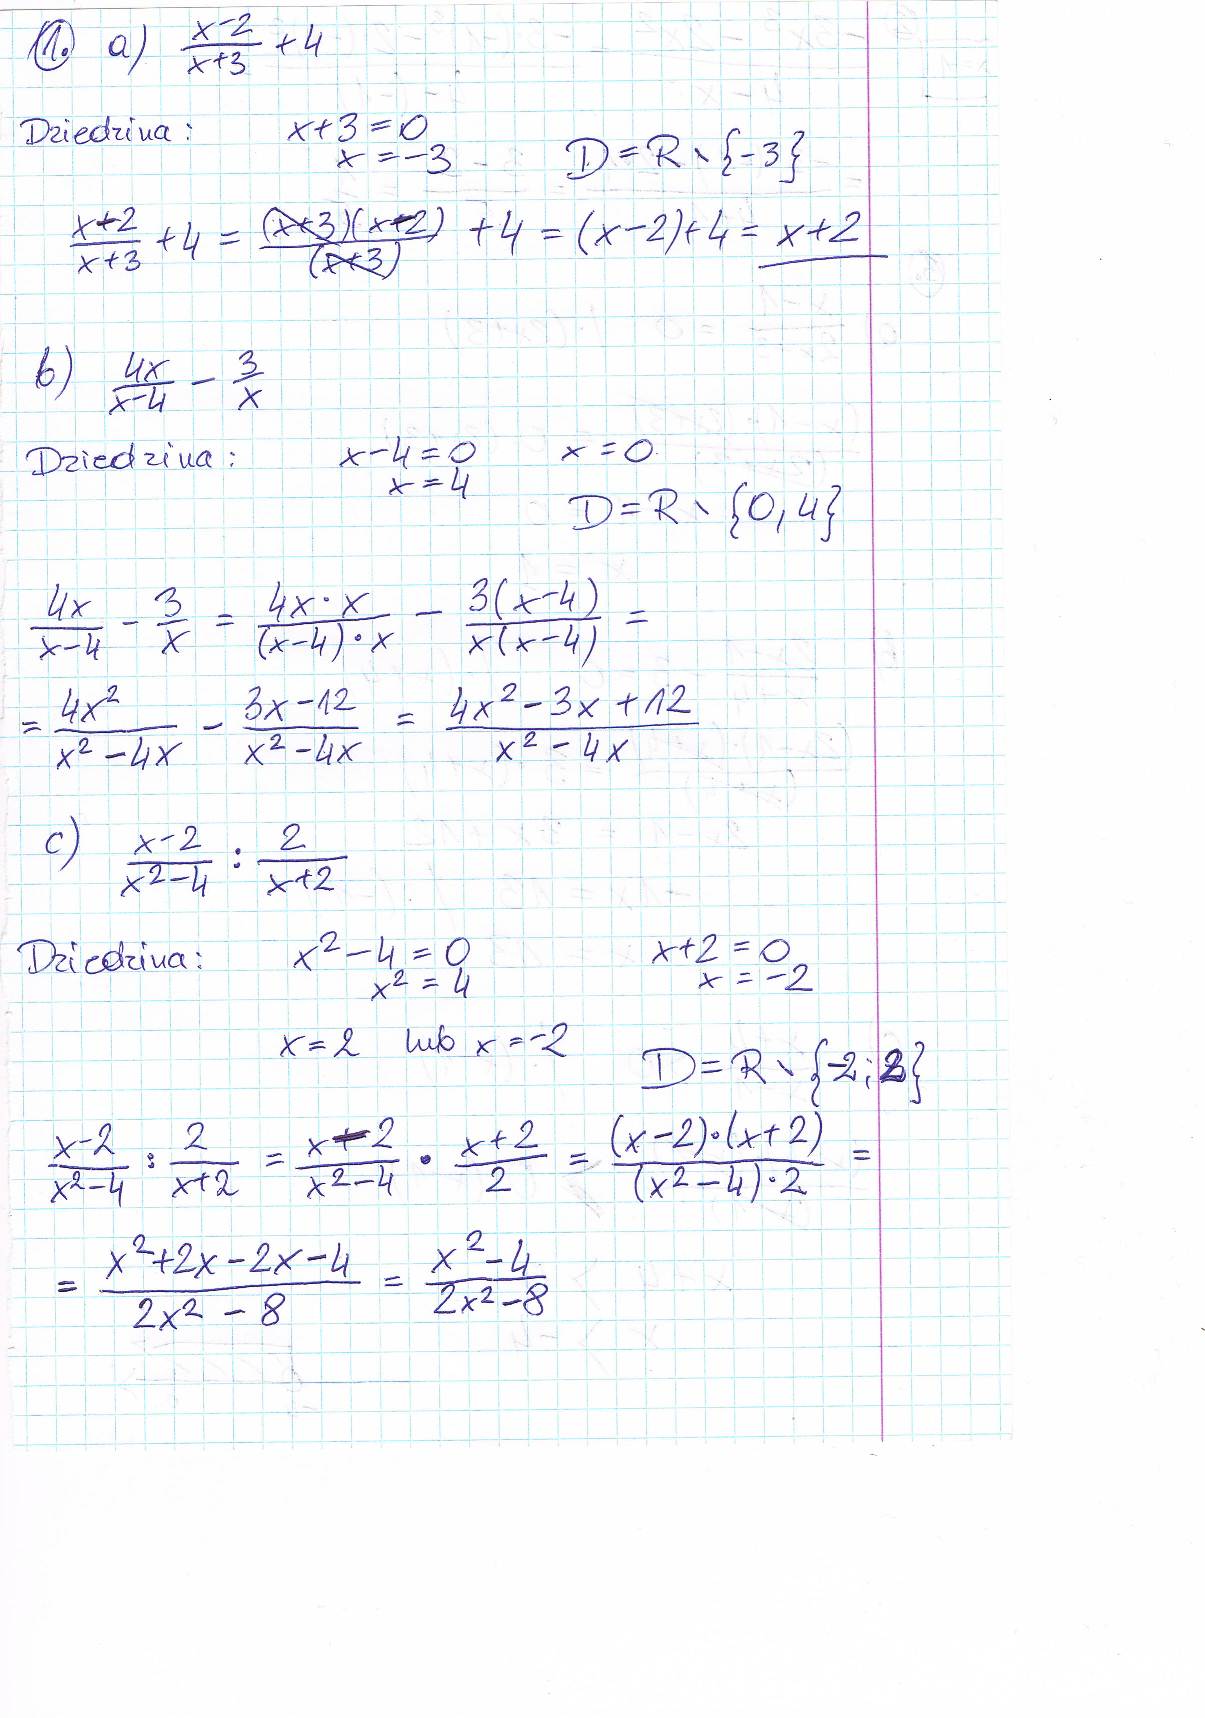 1. a) \frac{x-2}{x+3} + 4
Dziedzina: x+3=0
x=-3 D=R \ {-3}
\frac{x-2}{x+3} + 4 = \frac{(x+3)(x-2)}{(x+3)} + 4 = (x-2)+4 = x+2
b) \frac{4x}{x-4} - \frac{3}{x}
Dziedzina: x-4=0 x=0
x=4 D=R \ {0,4}
\frac{4x}{x-4} - \frac{3}{x} = \frac{4x·x}{(x-4)·x} - \frac{3(x-4)}{x(x-4)} =
= \frac{4x²}{x²-4x} - \frac{3x-12}{x²-4x} = \frac{4x²-3x+12}{x²-4x}
c) \frac{x-2}{x²-4} : \frac{2}{x+2}
Dziedzina: x²-4=0 x+2=0
x²=4 x=-2
x=2 lub x=-2 D=R \ {-2;2}
\frac{x-2}{x²-4} : \frac{2}{x+2} = \frac{x-2}{x²-4} · \frac{x+2}{2} = \frac{(x-2)·(x+2)}{(x²-4)·2} =
= \frac{x²+2x-2x-4}{2x²-8} = \frac{x²-4}{2x²-8}